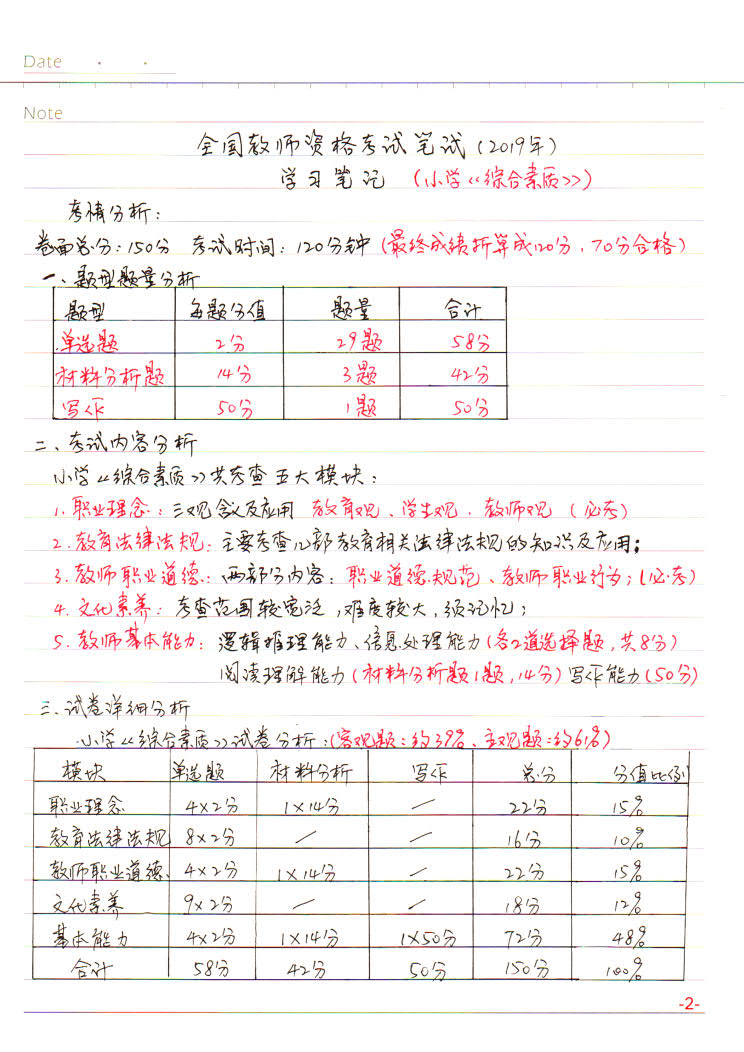 Date · ·
Note
全国教师资格考试笔试(2019年)
学习笔记 (小学《综合素质》)
考情分析:
卷面总分:150分 考试时间:120分钟(最终成绩折算成120分,70分合格)
一、题型题量分析
题型 每题分值 题量 合计
单选题 2分 29题 58分
材料分析题 14分 3题 42分
写作 50分 1题 50分
二、考试内容分析
小学《综合素质》共考查五大模块:
1.职业理念:三观含义及应用 教育观、学生观、教师观 (必考)
2.教育法律法规:主要考查几部教育相关法律法规的知识及应用;
3.教师职业道德:两部分内容:职业道德规范、教师职业行为;(必考)
4.文化素养:考查范围较宽泛,难度较大,须记忆;
5.教师基本能力:逻辑推理能力、信息处理能力(各2道选择题,共8分)
阅读理解能力(材料分析题1题,14分)写作能力(50分)
三.试卷详细分析
小学《综合素质》试卷分析:(客观题:约39%、主观题:约61%)
模块 单选题 材料分析 写作 总分 分值比例
职业理念 4×2分 1×14分 — 22分 15%
教育法律法规 8×2分 — — 16分 10%
教师职业道德 4×2分 1×14分 — 22分 15%
文化素养 9×2分 — — 18分 12%
基本能力 4×2分 1×14分 1×50分 72分 48%
合计 58分 42分 50分 150分 100%
-2-